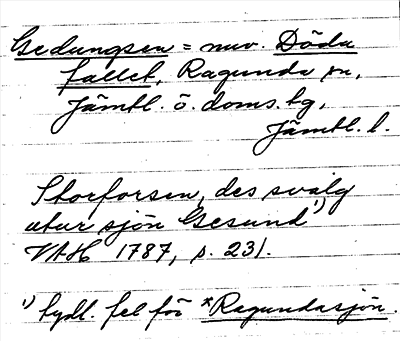 Gedungsen = nuv. Döda
fallet, Ragunda sn,
Jämtl. ö. doms. bg,
Jämtl. l.
Storforsen, des svalg
utur sjön Gesund¹⁾
VAH 1787, s. 231.
¹⁾ tydl. fel för *Ragundasjön.